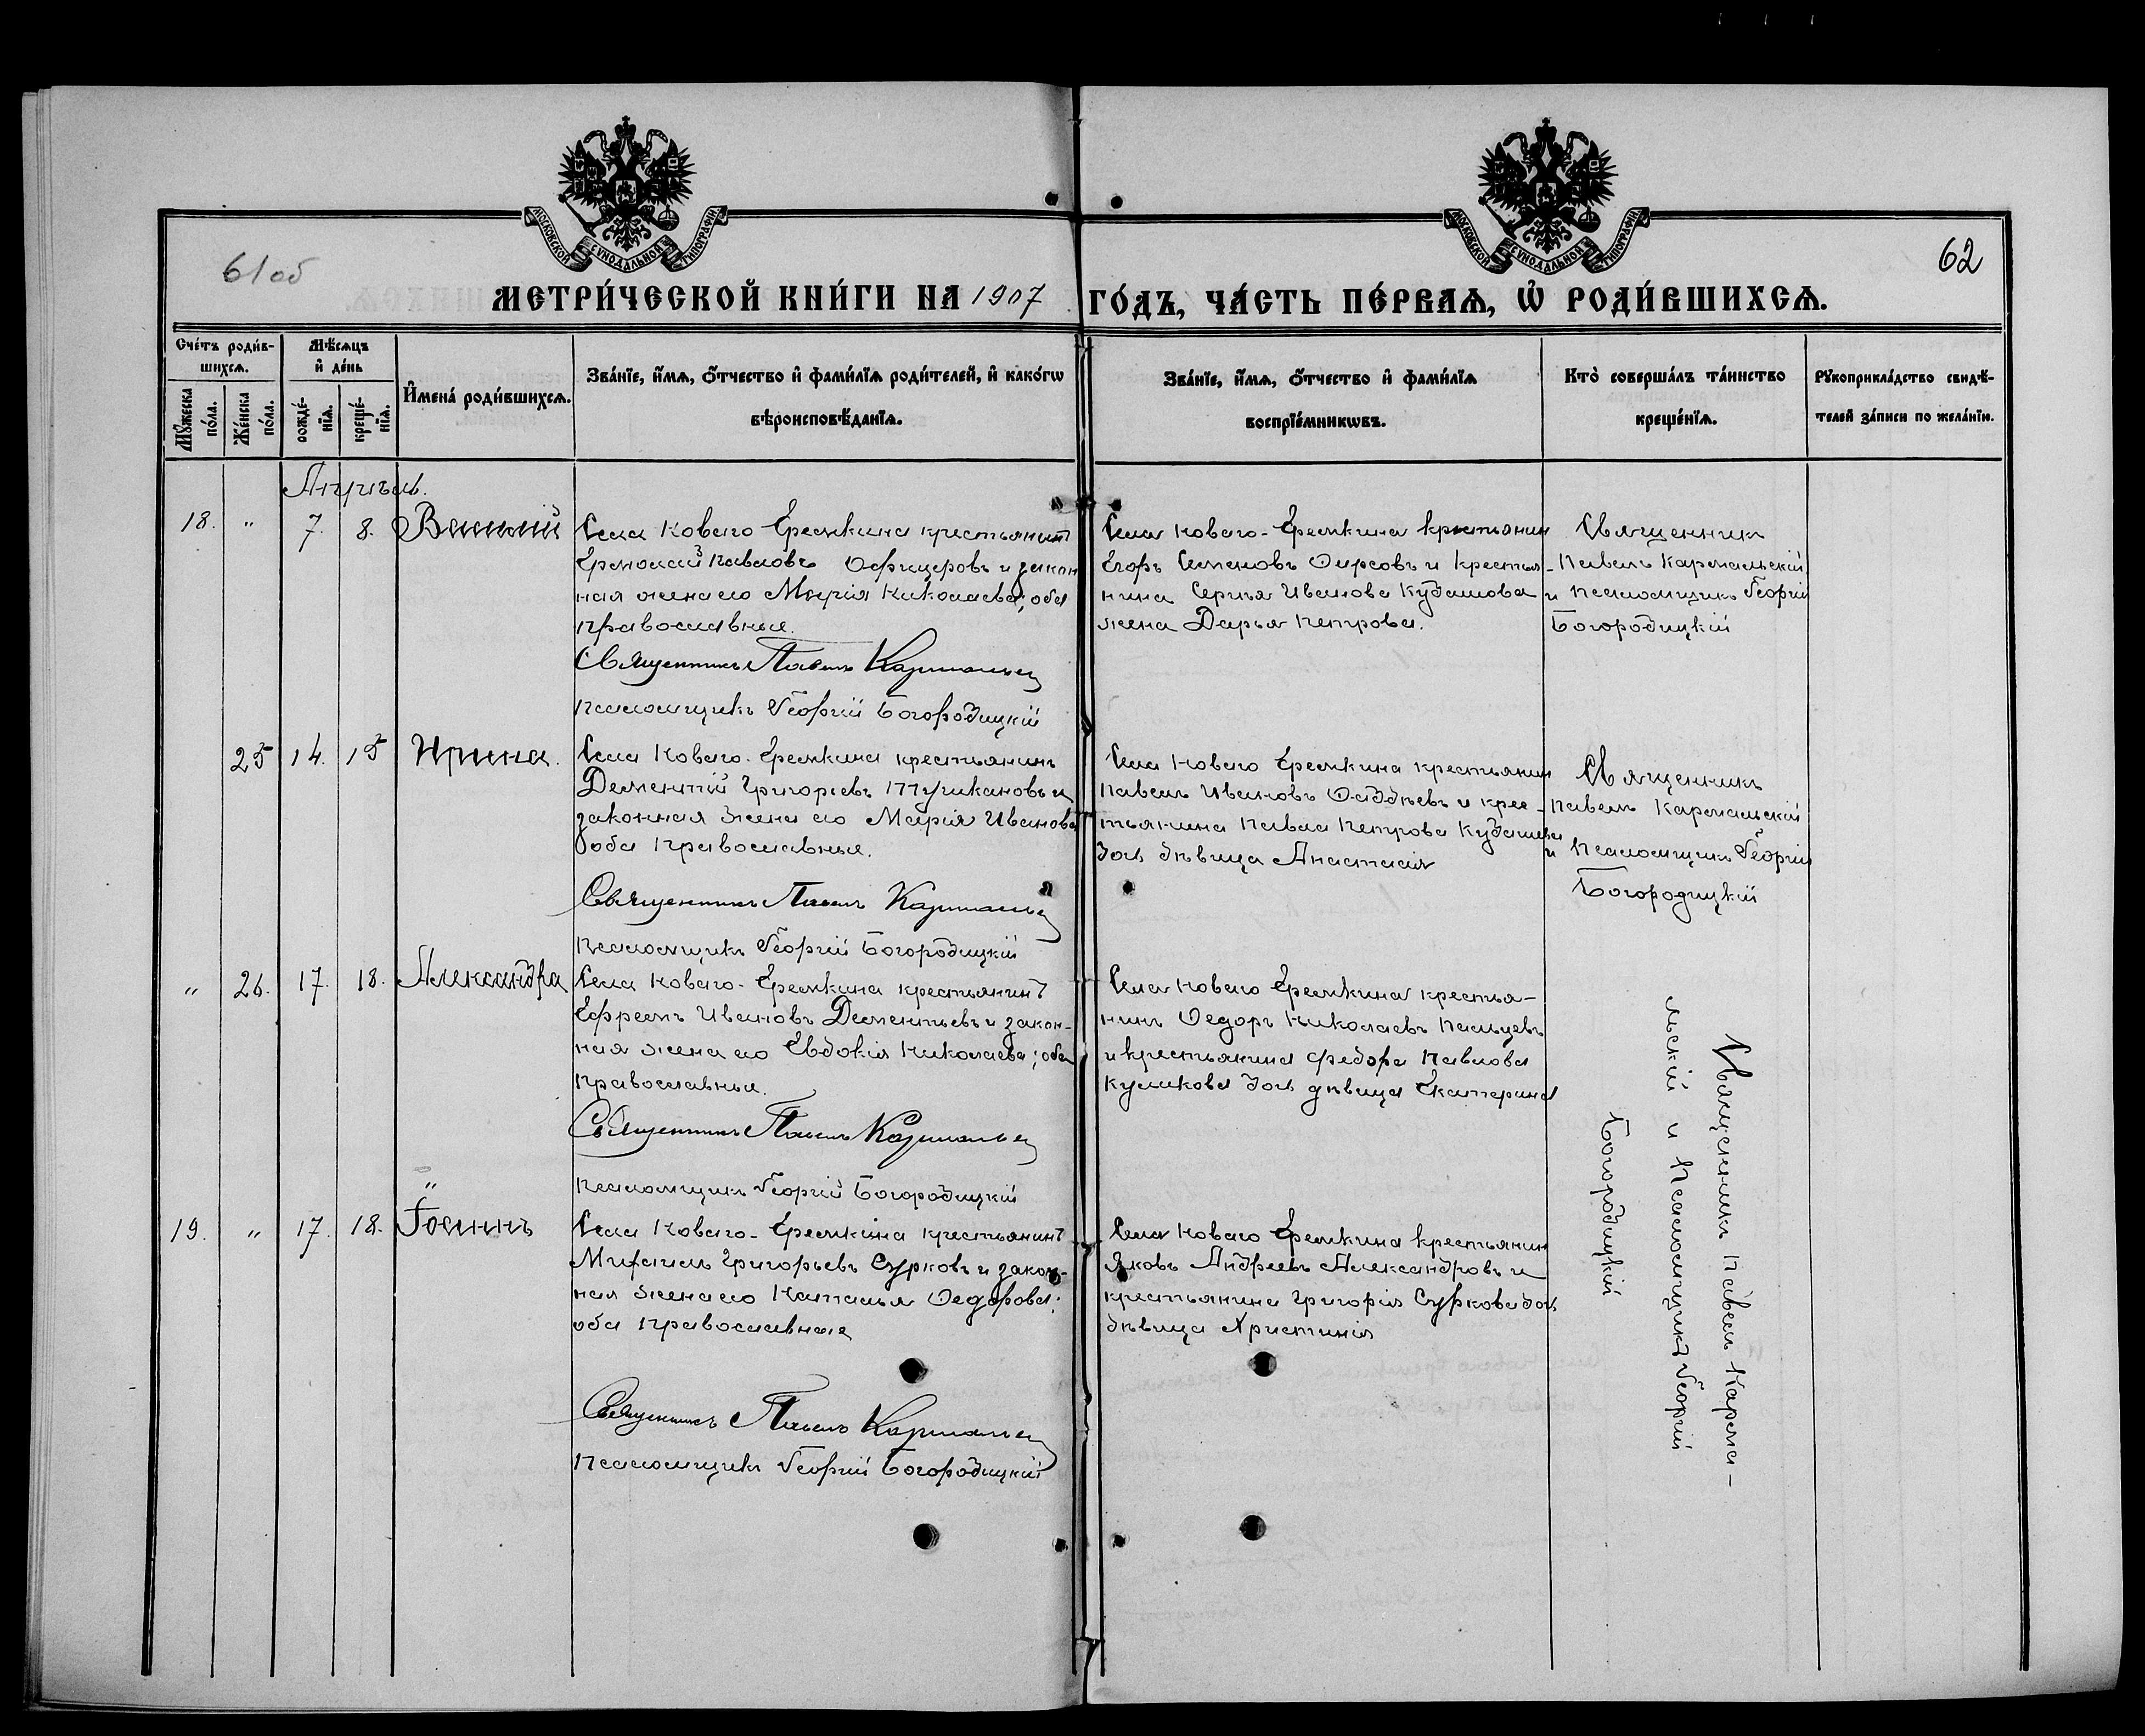 МОСКОВСКОЙ СѴНОДАЛЬНОЙ ТИПОГРАФІИ
МОСКОВСКОЙ СѴНОДАЛЬНОЙ ТИПОГРАФІИ
61 об
62
МЕТРИ́ЧЕСКОЙ КНИ́ГИ НА 1907 ГО́ДЪ, ЧА́СТЬ ПЕ́РВАѦ, Ѡ҆ РОДИ́ВШИХСѦ.
Сче́тъ роди́в-
шихсѧ.
Мꙋ́жеска по́ла.
Же́нска по́ла.
Мѣ́сѧцъ
и҆ де́нь
рожде́-
нїѧ.
креще́-
нїѧ.
И҆мена̀ роди́вшихсѧ.
Зва́нїе, и҆́мѧ, ѻ҆́тчество и҆ фами́лїѧ роди́телей, и҆ како́гѡ
вѣроисповѣ́данїѧ.
Зва́нїе, и҆́мѧ, ѻ҆́тчество и҆ фами́лїѧ
воспрїе́мникѡвъ.
Кто̀ соверша́лъ та́инство
креще́нїѧ.
Рꙋкоприкла́дство свидѣ́-
телей за́писи по жела́нїю.
Апрѣль.
18. " 7. 8. Василій
Села Новаго Еремкина крестьянинъ
Ермолай Павловъ Офицеровъ и закон
ная жена его Марія Николаева; оба
православные.
Священникъ Павелъ Кармальскій
Псаломщикъ Георгій Богородицкій
Села Новаго-Еремкина крестьянин
Егоръ Семеновъ Фирсовъ и крестья-
нина Сергѣя Иванова Кудашова
жена Дарья Петрова.
Священникъ
Павелъ Кармальскій
и Псаломщикъ Георгій
Богородицкій
25 14. 15 Ирина.
Села Новаго-Еремкина крестьянинъ
Дементій Григорьевъ и
законная жена его Марія Иванова
оба православные.
Священникъ Павелъ Кармальскій
Псаломщикъ Георгій Богородицкій
Села Новаго Еремкина крестьянин
Павелъ Ивановъ Фаддѣевъ и крес-
тьянина Павла Петрова Кудашева
дочь дѣвица Анастасія
Священникъ
Павелъ Кармальскій
и Псаломщикъ Георгій
Богородицкій
" 26. 17. 18. Александра
Села Новаго-Еремкина крестьянинъ
Ефремъ Ивановъ Дементьевъ и закон-
ная жена его Евдокія Николаева; оба
православные.
Священникъ Павелъ Кармальскій
Псаломщикъ Георгій Богородицкій
Села Новаго Еремкина крестья-
нинъ Ѳедоръ Николаевъ Пальцевъ
и крестьянина Федора Павлова
Куликова дочь дѣвица Екатерина
19. " 17. 18. Іоаннъ
Села Новаго-Еремкина крестьянинъ
Михаилъ Григорьевъ Сурковъ и закон-
ная жена его Наталья Ѳедорова;
оба православные
Священникъ Павелъ Кармальскій
Псаломщикъ Георгій Богородицкій
Села Новаго Еремкина крестьянин
Яковъ Андреевъ Александровъ и
крестьянина Григорія Суркова дочь
дѣвица Христинія
Священникъ Павелъ Карма-
льскій и Псаломщикъ Георгій
Богородицкій